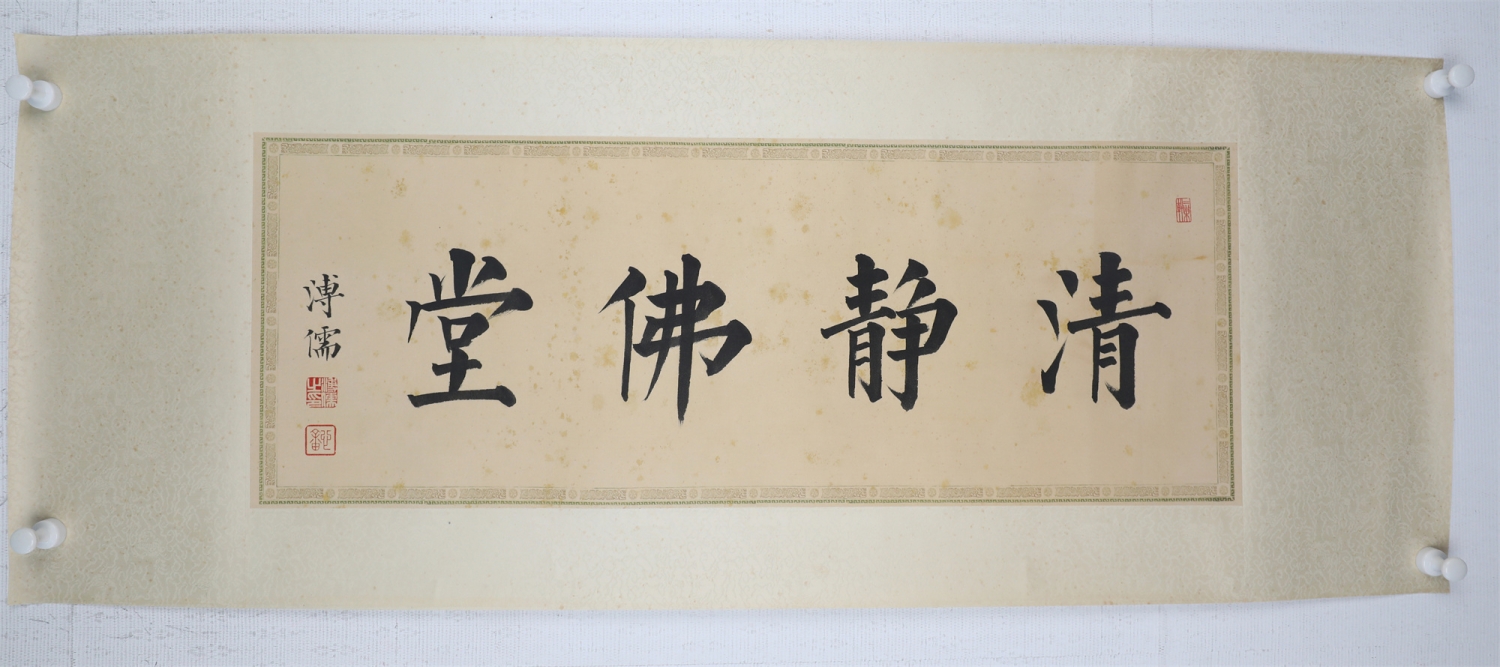 清靜佛堂
溥儒